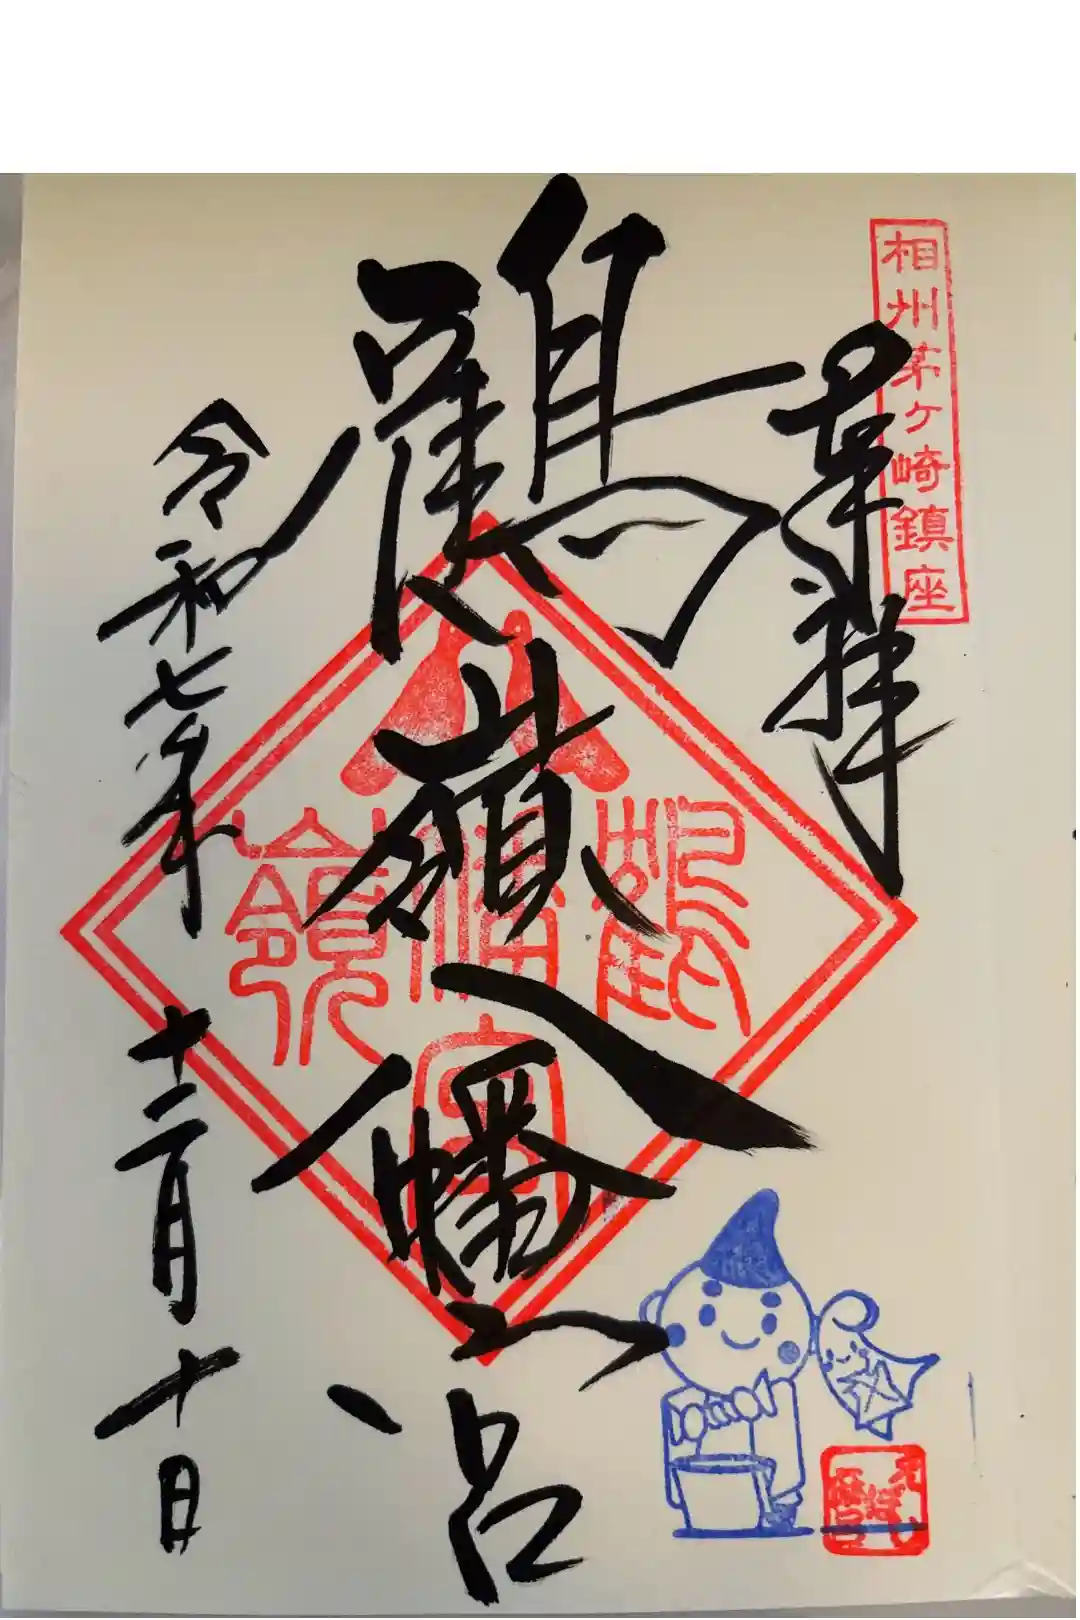 相州茅ケ崎鎮座
奉拝
鶴嶺八幡宮
鶴
八幡宮
嶺
令和七年十二月十日